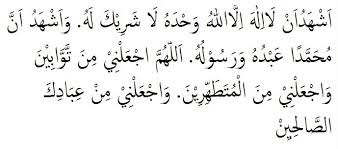 اَشْهَدُاَنْ لَااِلٰهَ اِلَّااللهُ وَحْدَهُ لَا شَرِيْكَ لَهُ. وَاَشْهَدُ اَنَّ
مُحَمَّدًا عَبْدُهُ وَرَسُوْلُهُ. اَللّٰهُمَّ اجْعَلْنِيْ مِنَ تَّوَّابِيْنَ
وَاجْعَلْنِيْ مِنَ الْمُتَطَهِّرِيْنَ. وَاجْعَلْنِيْ مِنْ عِبَادِكَ
الصَّالِحِيْنَ